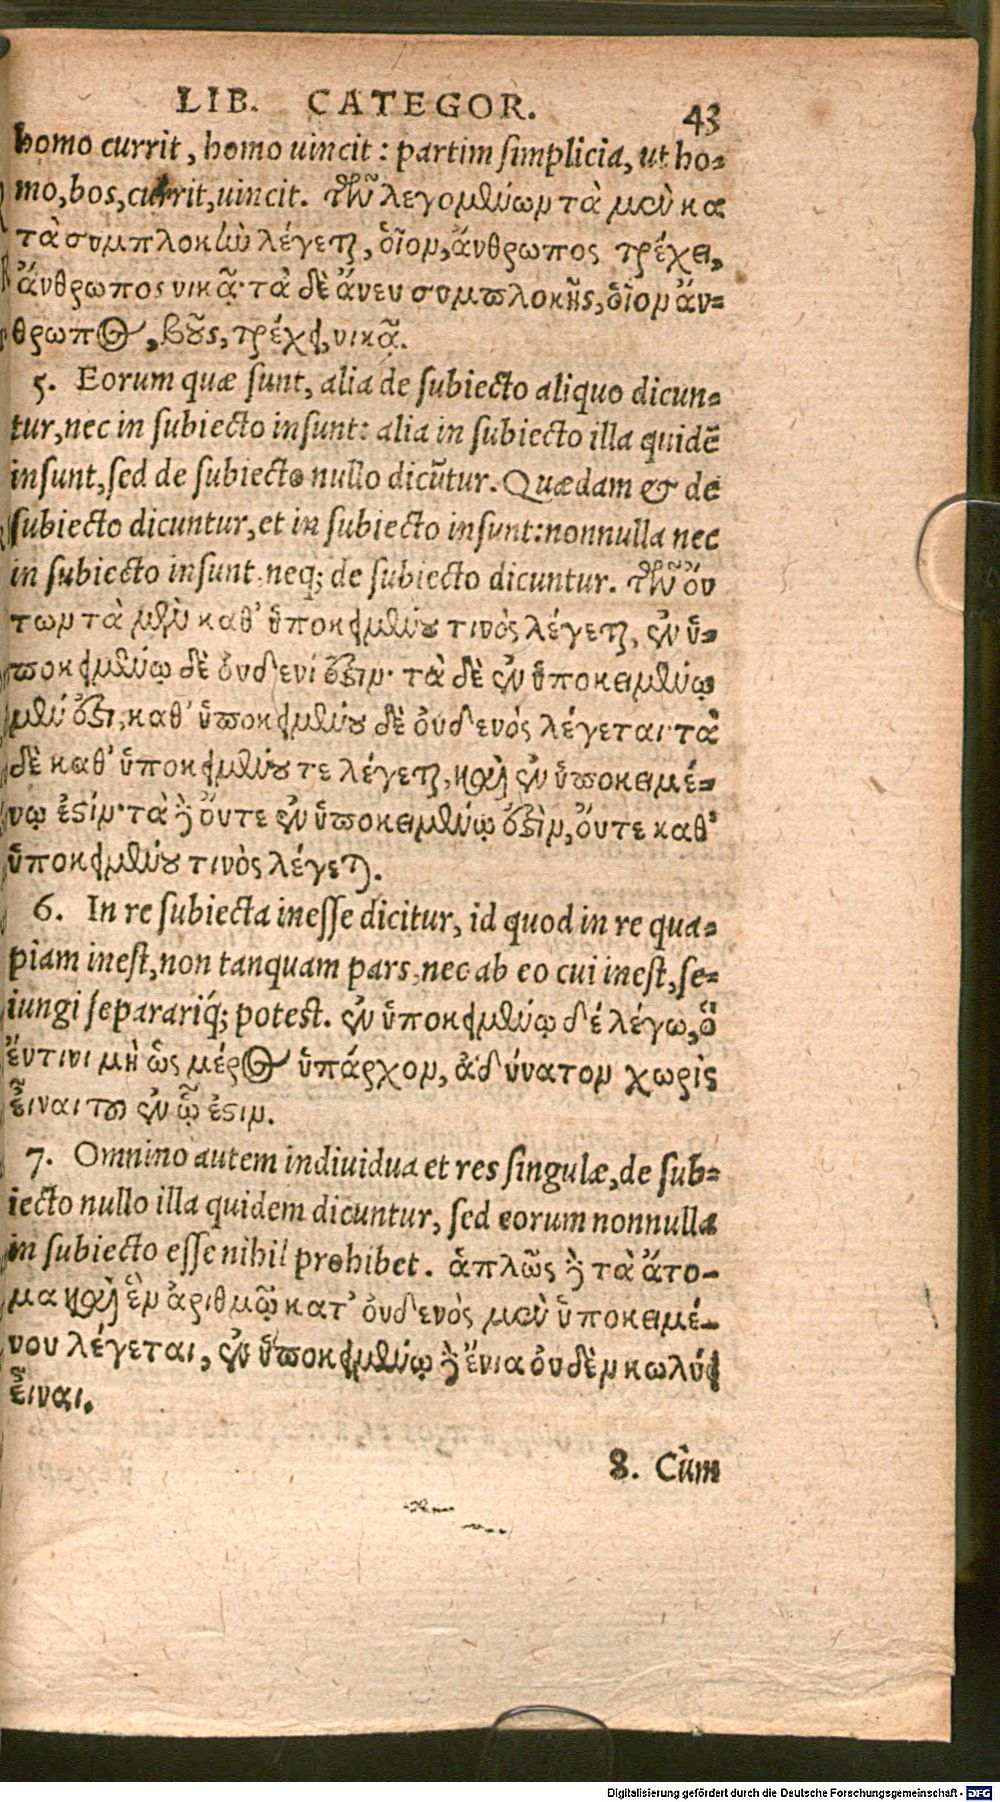 LIB. CATEGOR. 43
homo currit, homo uincit: partim simplicia, ut ho-
mo, bos, currit, uincit. τῶν λεγομένων τὰ μὲν κα
τὰ συμπλοκὴν λέγεται, ὅιον, ἄνθρωπος τρέχει,
ἄνθρωπος νικᾷ· τὰ δὲ ἄνευ συμπλοκῆς, ὅιον ἄν-
θρωπος, βοῦς, τρέχει, νικᾷ.
5. Eorum quæ sunt, alia de subiecto aliquo dicun-
tur, nec in subiecto insunt: alia in subiecto illa quidē
insunt, sed de subiecto nullo dicūtur. Quædam & de
subiecto dicuntur, et in subiecto insunt: nonnulla nec
in subiecto insunt, neq; de subiecto dicuntur. τῶν ὄν
των τὰ μὲν καθ' ὑποκειμένου τινὸς λέγεται, ἐν ὑ-
ποκειμένῳ δὲ ὀυδενί ἐστιν· τὰ δὲ ἐν ὑποκειμένῳ
μέν ἐστι, καθ' ὑποκειμένου δὲ ὀυδενὸς λέγεται· τὰ
δὲ καθ' ὑποκειμένου τε λέγεται, καὶ ἐν ὑποκειμέ-
νῳ ἐστίν· τὰ δὲ ὄυτε ἐν ὑποκειμένῳ ἐστὶν, ὄυτε καθ'
ὑποκειμένου τινὸς λέγεται.
6. In re subiecta inesse dicitur, id quod in re qua-
piam inest, non tanquam pars, nec ab eo cui inest, se-
iungi separariq́; potest. ἐν ὑποκειμένῳ δέ λέγω, ὃ
ἔν τινι μὴ ὡς μέρος ὑπάρχον, ἀδύνατον χωρὶς
εἶναι τοῦ ἐν ᾧ ἐστιν.
7. Omnino autem indiuidua et res singulæ, de sub-
iecto nullo illa quidem dicuntur, sed eorum nonnulla
in subiecto esse nihil prohibet. ἁπλῶς δὲ τὰ ἄτο-
μα καὶ ἓν ἀριθμῷ κατ' ὀυδενὸς μὲν ὑποκειμέ-
νου λέγεται, ἐν ὑποκειμένῳ δὲ ἔνια ὀυδὲν κωλύει
εἶναι.
8. Cùm
Digitalisierung gefördert durch die Deutsche Forschungsgemeinschaft · DFG